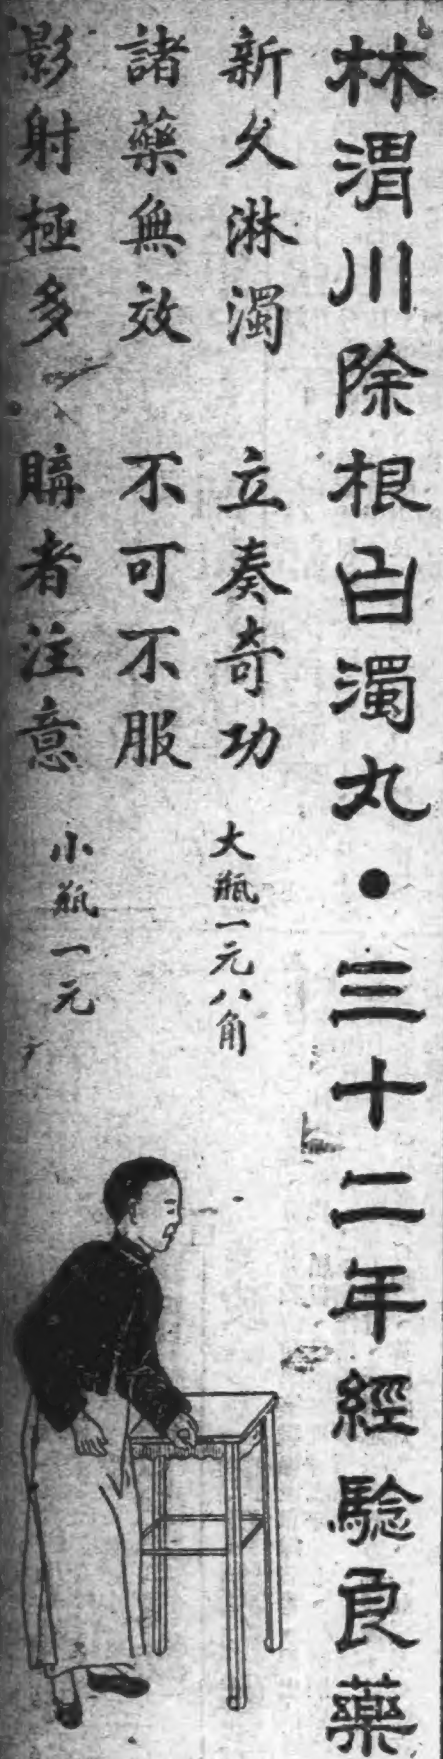 林渭川除根白濁丸•三十二年經驗良藥
新久淋濁 立奏奇功
大瓶一元八角
諸藥無效 不可不服
小瓶一元
影射極多 購者注意